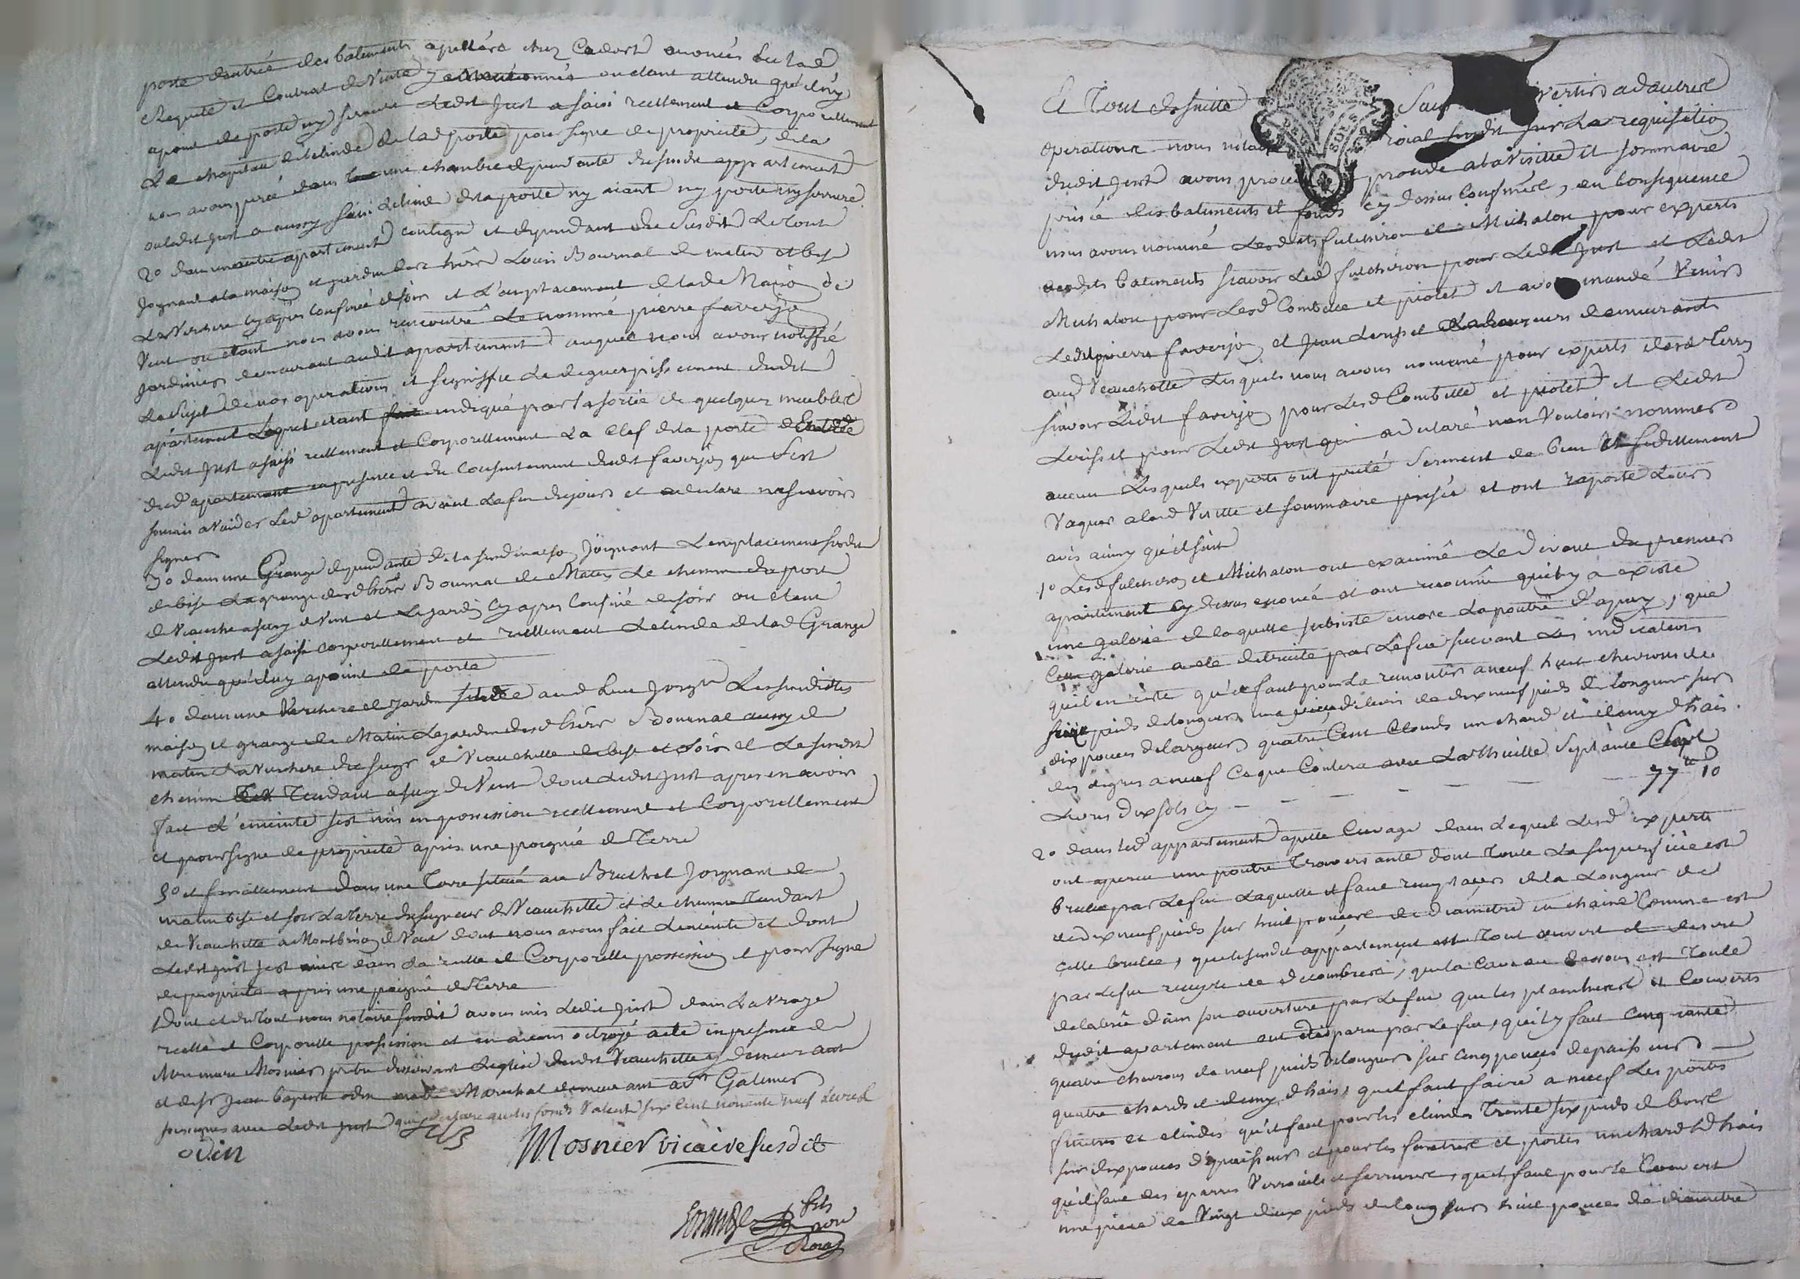 porte d'entrée des batiments apellées chez Cadort enoncés
Requete et Contrat de Vente y mentionnés ou etant attendu qu'il n'y
a point de porte ny serrure Ledit Just a saisi reellement et Corporellement
de lad porte pour signe de propriété, de la
nous avons passé dans une chambre dependante du susdit appartement
ou ledit Just a aussy saisi de la porte ny aiant ny porte ny serrure
2o dans un autre apartement contigu et dependant du Susdit Le tout
Joignant a la maison et jardin des hers Louis Bournal de matin et bise
La Verchere cy apres confinée de soir et L'emplacement de lad Maison de
Vent ou etant nous avons rencontré Le nommé pierre faverjon
Jardinier demeurant audit apartement auquel nous avons nottiffié
Le sujet de nos operations et signiffié Le deguerpissement dudit
apartement Lequel etant indiqué par la sortie de quelques meubles
Ledit Just a saisi reellement et Corporellement La Clef de la porte d'Entrée
dud apartement en presence et du Consentement dudit faverjon qui s'est
soumis a Vuider Led apartement avant La fin du jour et a declaré ne scavoir
signer
3o dans une Grange dependante de la susd maison Joignant L'emplacement susdit
de bise La grange desd hers Bournal de Matin Le chemin du port
de Veauche a sury de Vent et Le jardin Cy apres Confiné de soir ou etant
Ledit Just a saisi corporellement et reellement de lad Grange
attendu qu'il n'y a point de porte
4o dans une Verchere et Jardin situés aud Lieu Joignt Les susdittes
maison et grange de Matin Le jardin desd hers Bournal aussy de
matin La Verchere du sieur de Veauchette de bise et soir et Le susdit
chemin Tendant a sury de Vent dont Ledit Just apres en avoir
fait L'enceinte s'est mis en possession reellement et Corporellement
et pour signe de propriété a pris une poignée de Terre
5o et finallement dans une Terre située au Bruchet Joignant de
matin bise et soir La Terre du seigneur de Veauchette et Le chemin Tendant
de Veauchette a Montbrison de Vent dont nous avons fait L'enceinte et dont
Ledit Just s'est mis dans La reelle et Corporelle possession et pour signe
de propriété a pris une poignée de Terre
Dont et du Tout nous notaire susdit avons mis Ledit Just dans La vraye
reelle et Corporelle possession et en avons octroyé acte en presence de
Mre marc Mosnier pretre desservant L'eglise dudit Veauchette y demeurant
et de sr Jean Baptiste odin Marechal demeurant a st Galmier
soussignés avec Ledit Just qui declare que les fonds Valent six Cent nonante neuf Livres
odin
Just
Mosnier vicaire susdit
fils
nore
Roial
Et Tout de suitte Sans divertir a d'autres
operations nous notaire roial susdit sur La requisition
dudit Just avons procedé a la Visitte et sommaire
prisée des batiments et fonds cy dessus Confinés, en Consequence
nous avons nommé Lesdits fulchiron et Michalon pour experts
desdits batiments scavoir Led fulchiron pour Led Just et Ledit
Michalon pour Lesd Combette et piolet et avons mandé Venir
Ledit pierre faverjon et Jean Loriset Laboureurs demeurants
aud Veauchette Lesquels nous avons nommé pour experts desd Terres
scavoir Ledit faverjon pour Lesd Combette et piolet et Ledit
Loriset pour Ledit Just qui a declaré n'en Vouloir nommer
aucun Lesquels experts ont prété Serment de bien et fidellement
Vaquer a lad Visitte et sommaire prisée et ont raporté Leurs
avis ainsy qu'il suit
1o Lesd fulchiron et Michalon ont examiné Le devant du premier
apartiment cy dessus enoncé et ont reconnu qu'il y a existé
une galerie de laquelle subsiste encore La poutre d'apuy, que
Cette galerie a eté detruite par Le feu suivant Les indications
qu'il en reste qu'il faut pour La remonter a neuf huit chevrons de
seize pieds de longueur une de dix neuf pieds de longueur sur
dix pouces de largeur quatre Cent Clouds un chard et demy d'hais
des degrés a neuf Ce que Coutera avec La thuille Septante Sept
Livres dix sols Cy - - - - - 77lt 10
2o dans led appartement apellé Cuvage dans Lequel Lesd experts
ont aperceu une poutre Traversante dont Toute La superficie est
brulée par Le feu Laquelle il faut remplacer de la Longueur de
dix neuf pieds sur huit pouces de diametre en chaine Comme est
Celle brulée, que le susdit appartement est Tout ouvert et desert
par Le feu remply de decombres, que la Cave au dessous est Toute
delabrée dans son ouverture par Le feu que les planchers et Couverts
dudit apartement ont disparu par Le feu, qu'il y faut Cinquante
quatre chevrons de neuf pieds de longueur sur Cinq pouces d'epaisseur
quatre chards et demy d'hais, qu'il faut faire a neuf Les portes
fenetres et qu'il faut pour les Trente six pieds de bois
sur dix pouces d'epaisseur et pour les fenetres et portes un chard d'hais
qu'il faut des eparres Verrouils et serrures, qu'il faut pour le Couvert
une piece de Vingt deux pieds de long sur huit pouces de diametre